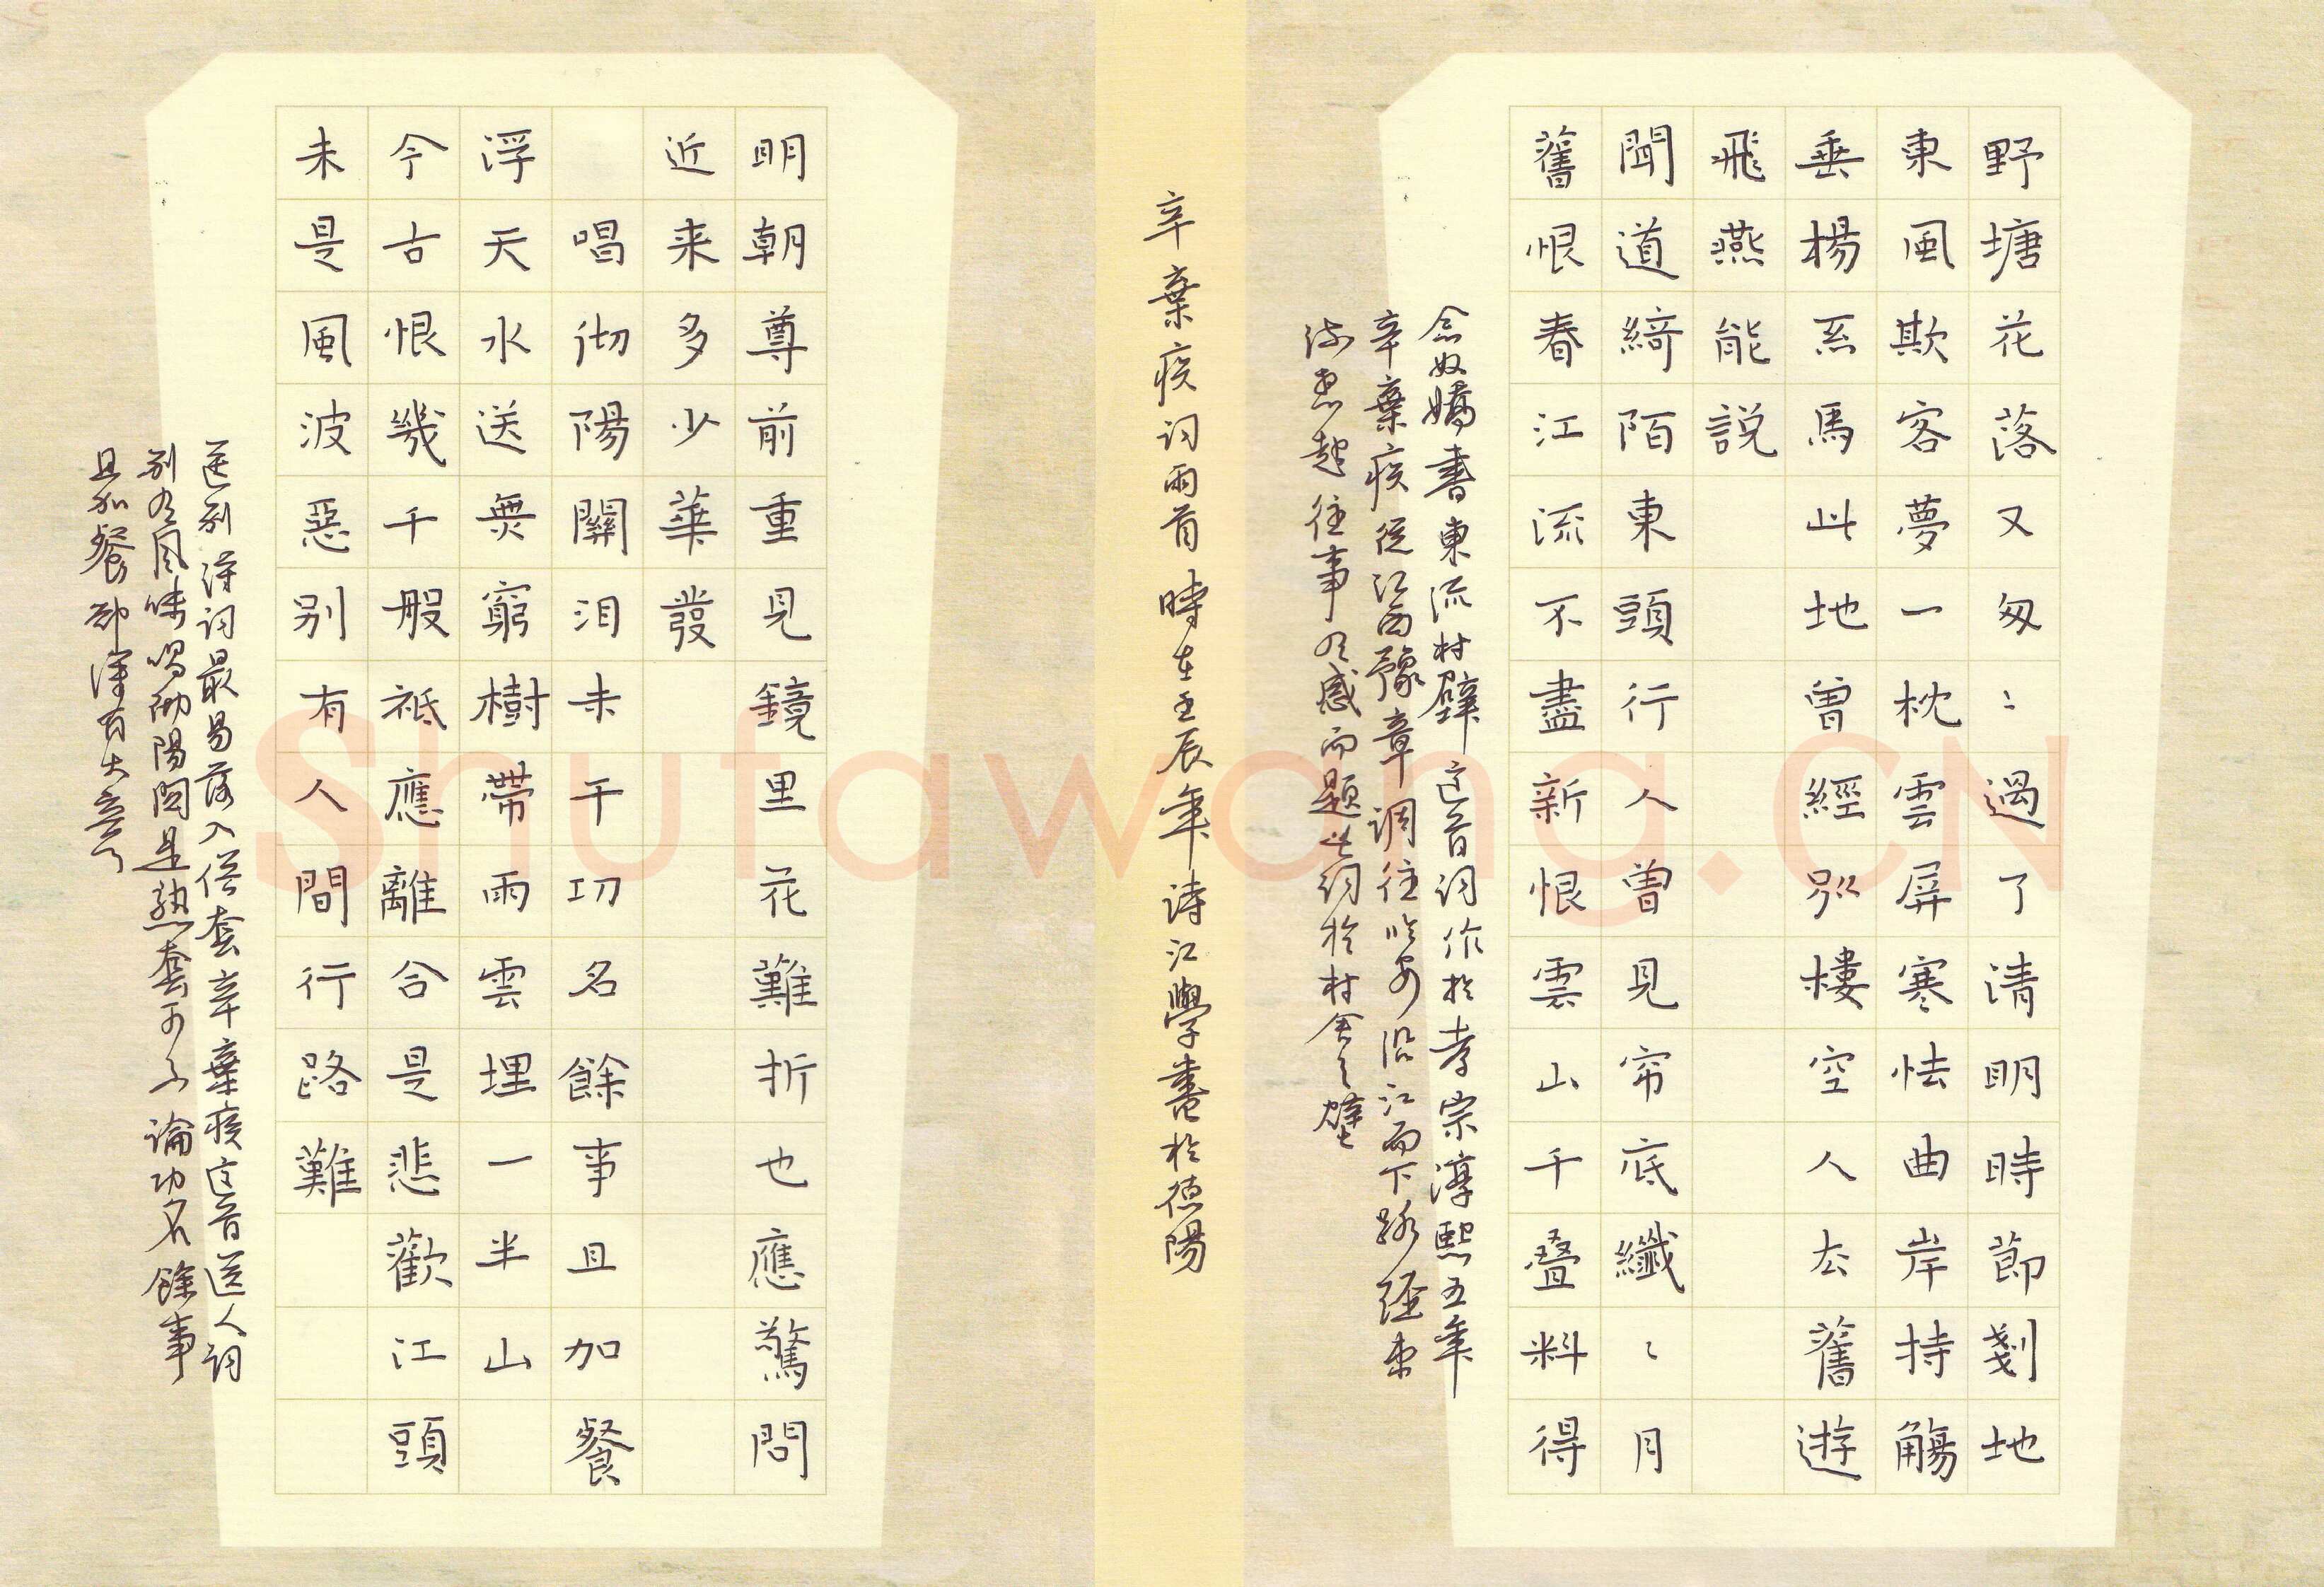 野塘花落又匆〻過了清明時節剗地
東風欺客夢一枕雲屏寒怯曲岸持觴
垂楊系馬此地曾經別樓空人去舊遊
飛燕能説
聞道綺陌東頭行人曾見帘底纖〻月
舊恨春江流不盡新恨雲山千叠料得
念奴嬌書東流村壁這首詞作於孝宗淳熙五年
辛棄疾從江西豫章調往臨安沿江而下路經東
流想起往事有感而題此詞於村舍之壁
辛棄疾词两首時在壬辰年詩江學書於德陽
明朝尊前重見鏡里花難折也應驚問
近来多少華發
唱彻陽關泪未干功名餘事且加餐
浮天水送無窮樹帶雨雲埋一半山
今古恨幾千般祗應離合是悲歡江頭
未是風波惡别有人間行路難
送别詩词最易落入俗套辛棄疾這首送人词
别有風味唱彻陽関是熟套可不論功名餘事
且加餐却深有大意了
Shufawang.CN